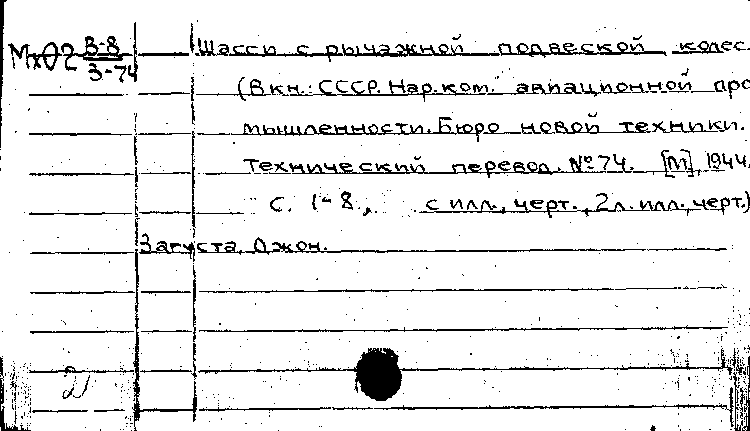 Мх02 В-8 Шасси с рычажной подвеской колес.
3-74 (В кн.: СССР. Нар.ком. авиационной про
мышленности. Бюро новой техники.
Технический перевод. №74. [М], 1944.
С. 1-8, с илл., черт., 2л. илл., черт.)
Загуста, Джон.
21